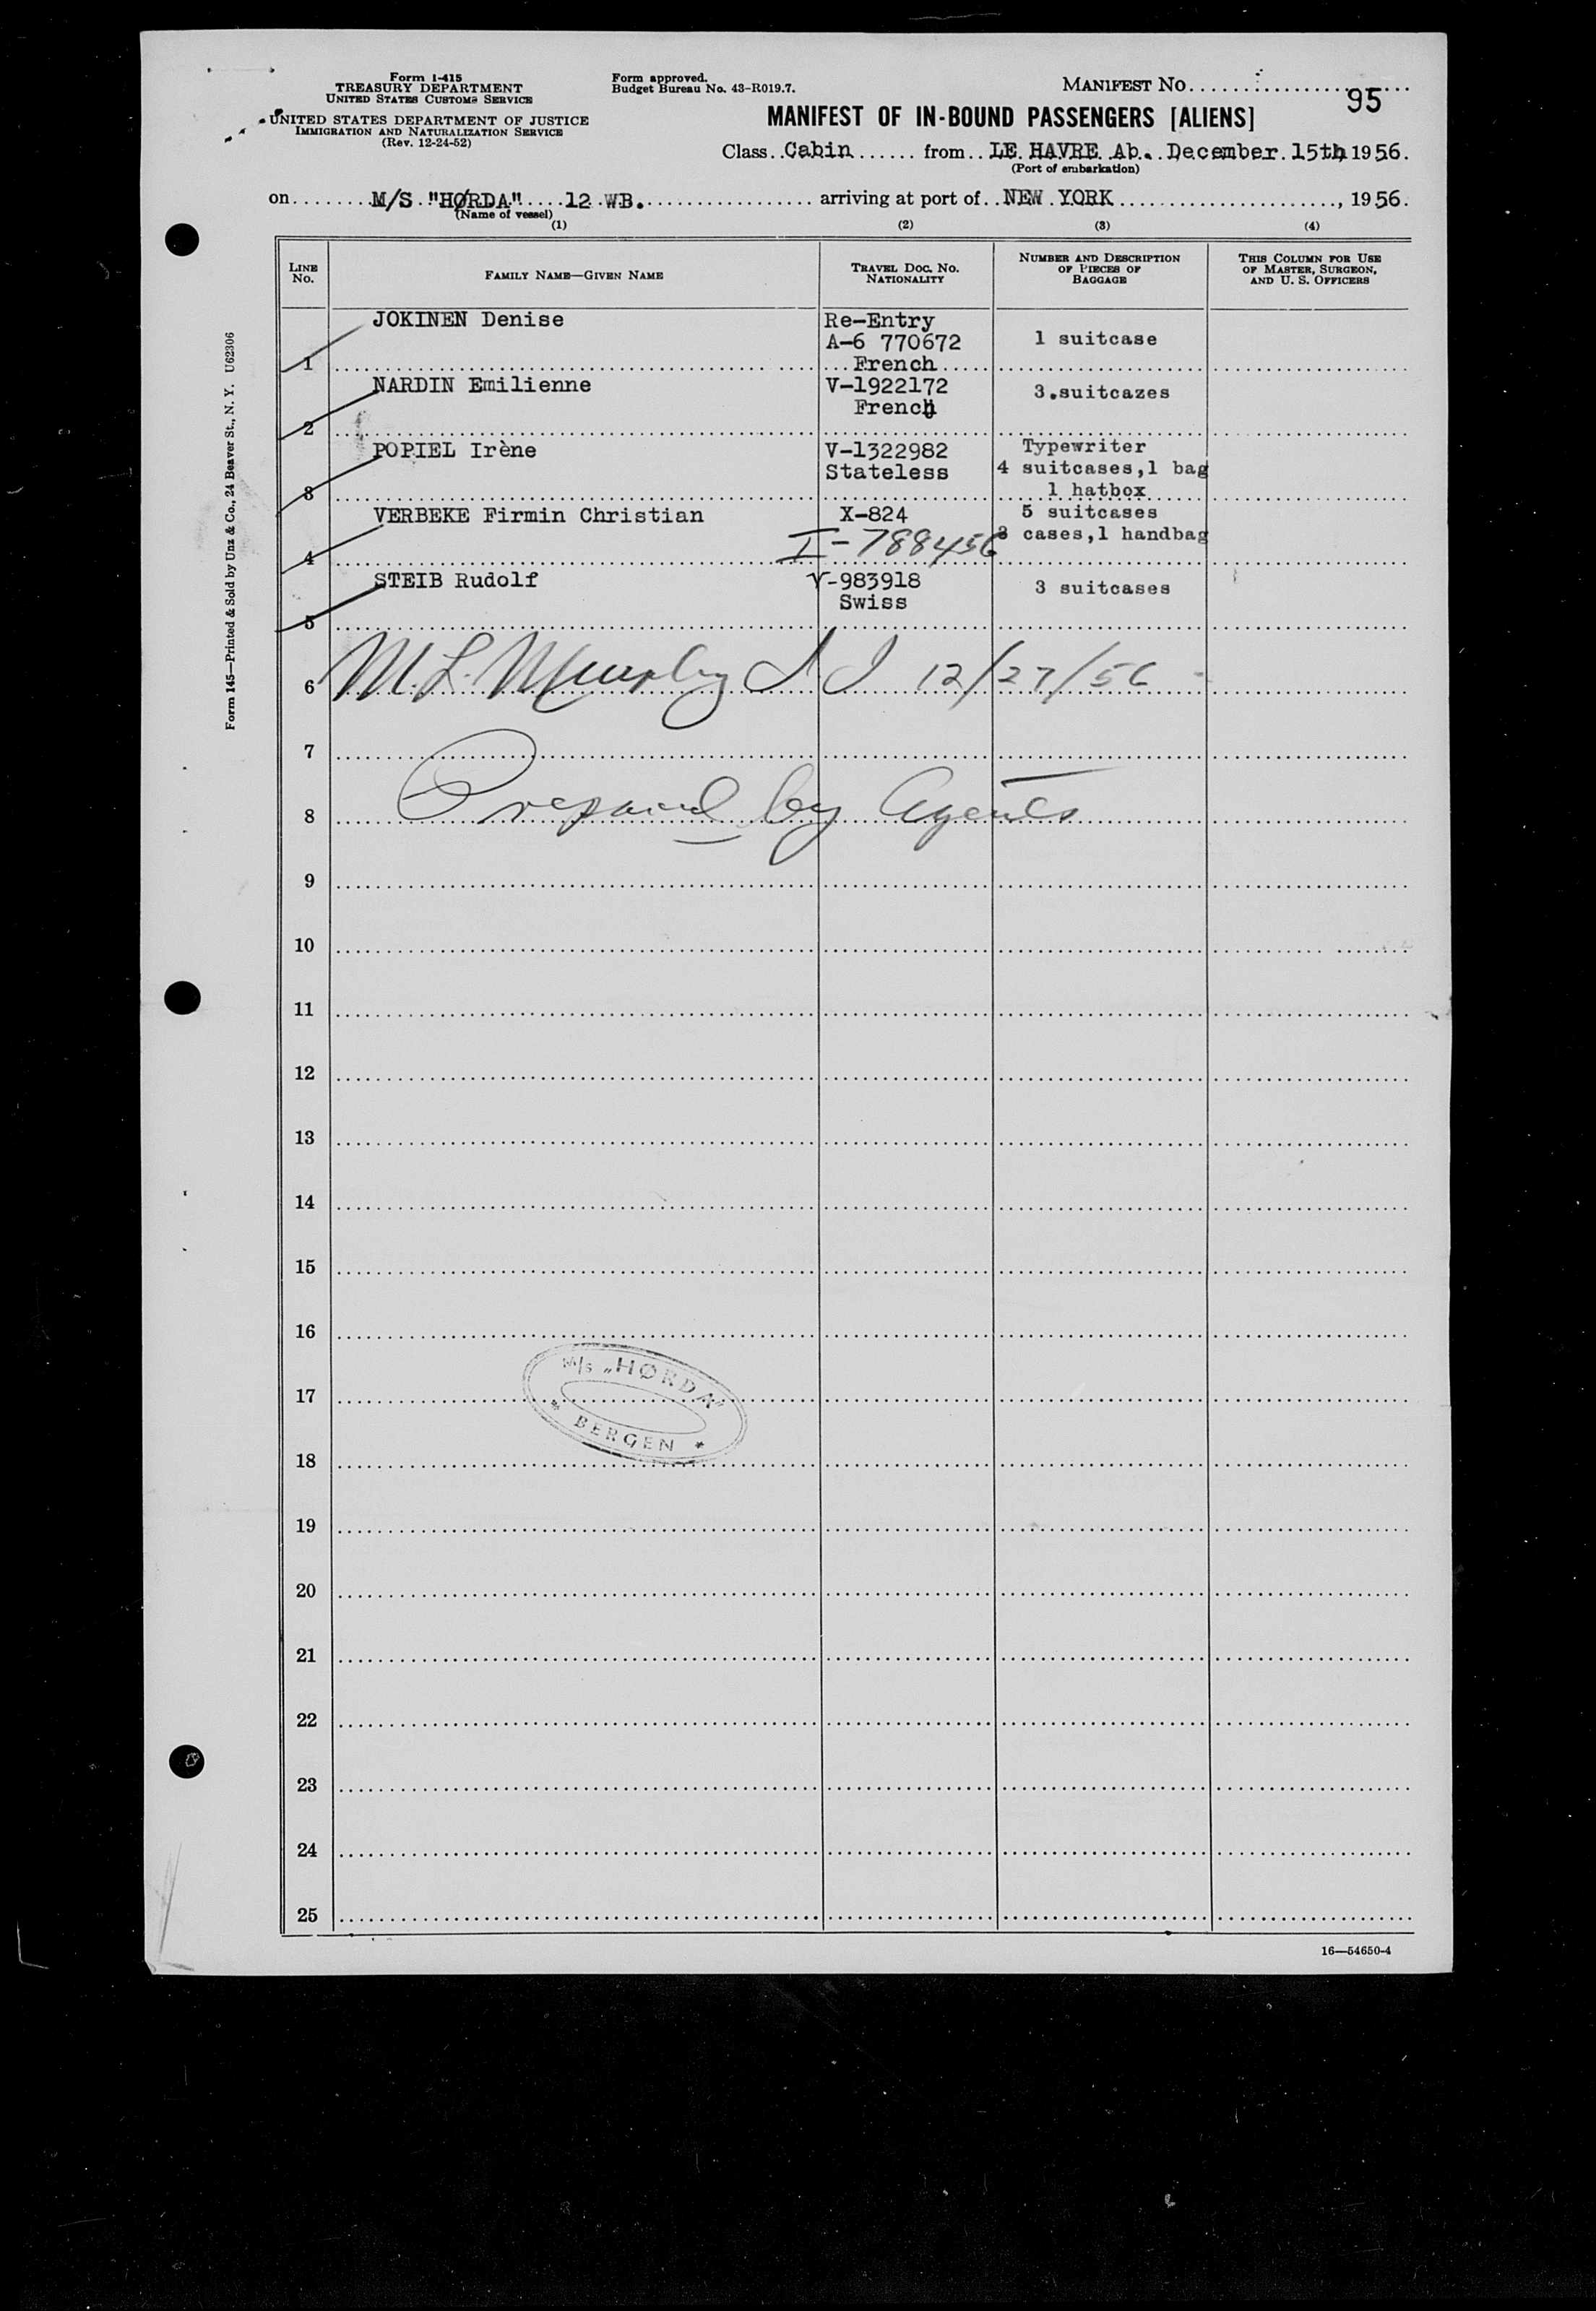 Form I-415
TREASURY DEPARTMENT
UNITED STATES CUSTOMS SERVICE
UNITED STATES DEPARTMENT OF JUSTICE
IMMIGRATION AND NATURALIZATION SERVICE
(Rev. 12-24-52)
Form approved.
Budget Bureau No. 43-R019.7.
MANIFEST NO. 95
MANIFEST OF IN-BOUND PASSENGERS [ALIENS]
Class Cabin from LE HAVRE Ab. December 15th 1956.
(Port of embarkation)
on M/S "HØRDA" 12 WB. arriving at port of NEW YORK, 1956.
(Name of vessel)
(1) (2) (3) (4)
LINE NO. FAMILY NAME—GIVEN NAME TRAVEL DOC. NO. NATIONALITY NUMBER AND DESCRIPTION OF PIECES OF BAGGAGE THIS COLUMN FOR USE OF MASTER, SURGEON, AND U. S. OFFICERS
1 JOKINEN Denise Re-Entry A-6 770672 French 1 suitcase
2 NARDIN Emilienne V-1922172 French 3.suitcazes
3 POPIEL Irène V-1322982 Stateless Typewriter 4 suitcases,1 bag 1 hatbox
4 VERBEKE Firmin Christian X-824 I-788456 5 suitcases 3 cases,1 handbag
5 STEIB Rudolf V-983918 Swiss 3 suitcases
6 M. L. Murphy I I 12/27/56
7
8 Prepared by Agents
9
10
11
12
13
14
15
16
M/S „HØRDA"
17
* BERGEN *
18
19
20
21
22
23
24
25
16—54650-4
Form 145—Printed & Sold by Unz & Co., 24 Beaver St., N. Y. U62306